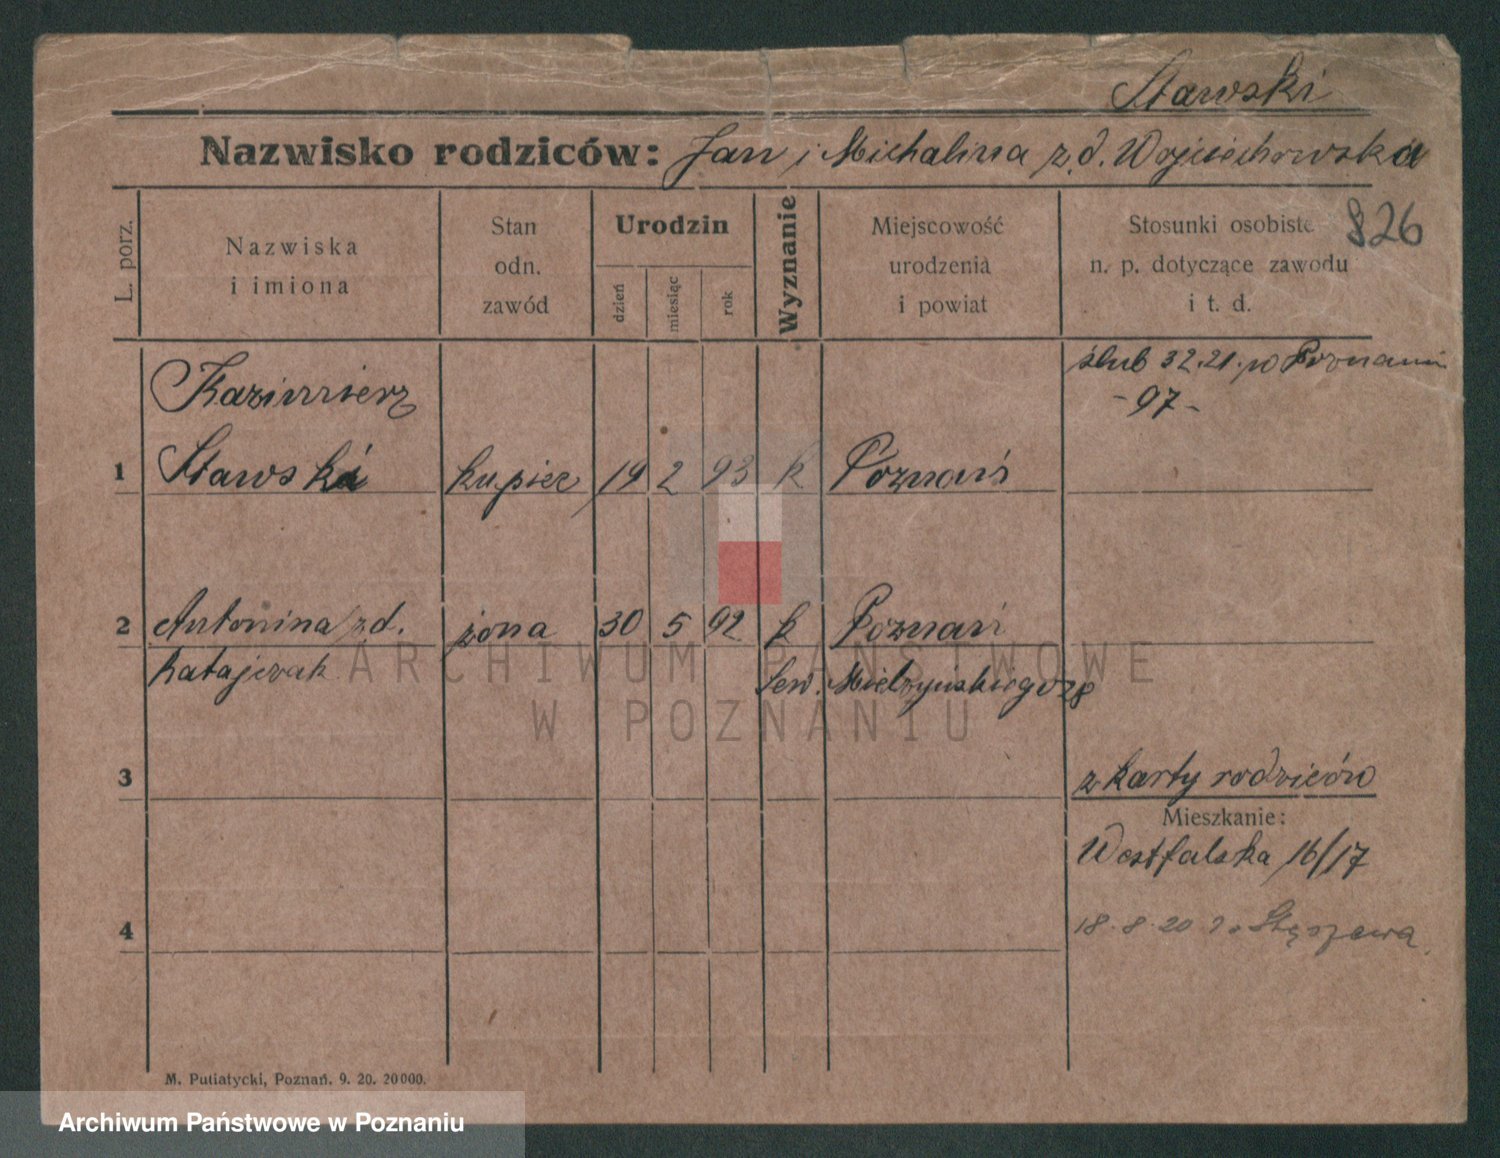 Stawski
Nazwisko rodziców: Jan i Michalina z d. Wojciechowska
L. porz.
Nazwiska
i imiona
Stan
odn.
zawód
Urodzin
dzień
miesiąc
rok
Wyznanie
Miejscowość
urodzenia
i powiat
Stosunki osobiste
n. p. dotyczące zawodu
i t. d.
826
ślub 3 2. 21. w Poznaniu
- 97 -
Kazimierz
1 Stawski kupiec 19 2 93 k Poznań
2 Antonina z d. żona 30 5 92 k Poznań
Ratajczak
Sew. Mielżyńskiego 28
ARCHIWUM PAŃSTWOWE
W POZNANIU
3
z karty rodziców
Mieszkanie:
Westfalska 16/17
4
18. 8. 20 Stęszewa
M. Putiatycki, Poznań. 9. 20. 20000.
Archiwum Państwowe w Poznaniu